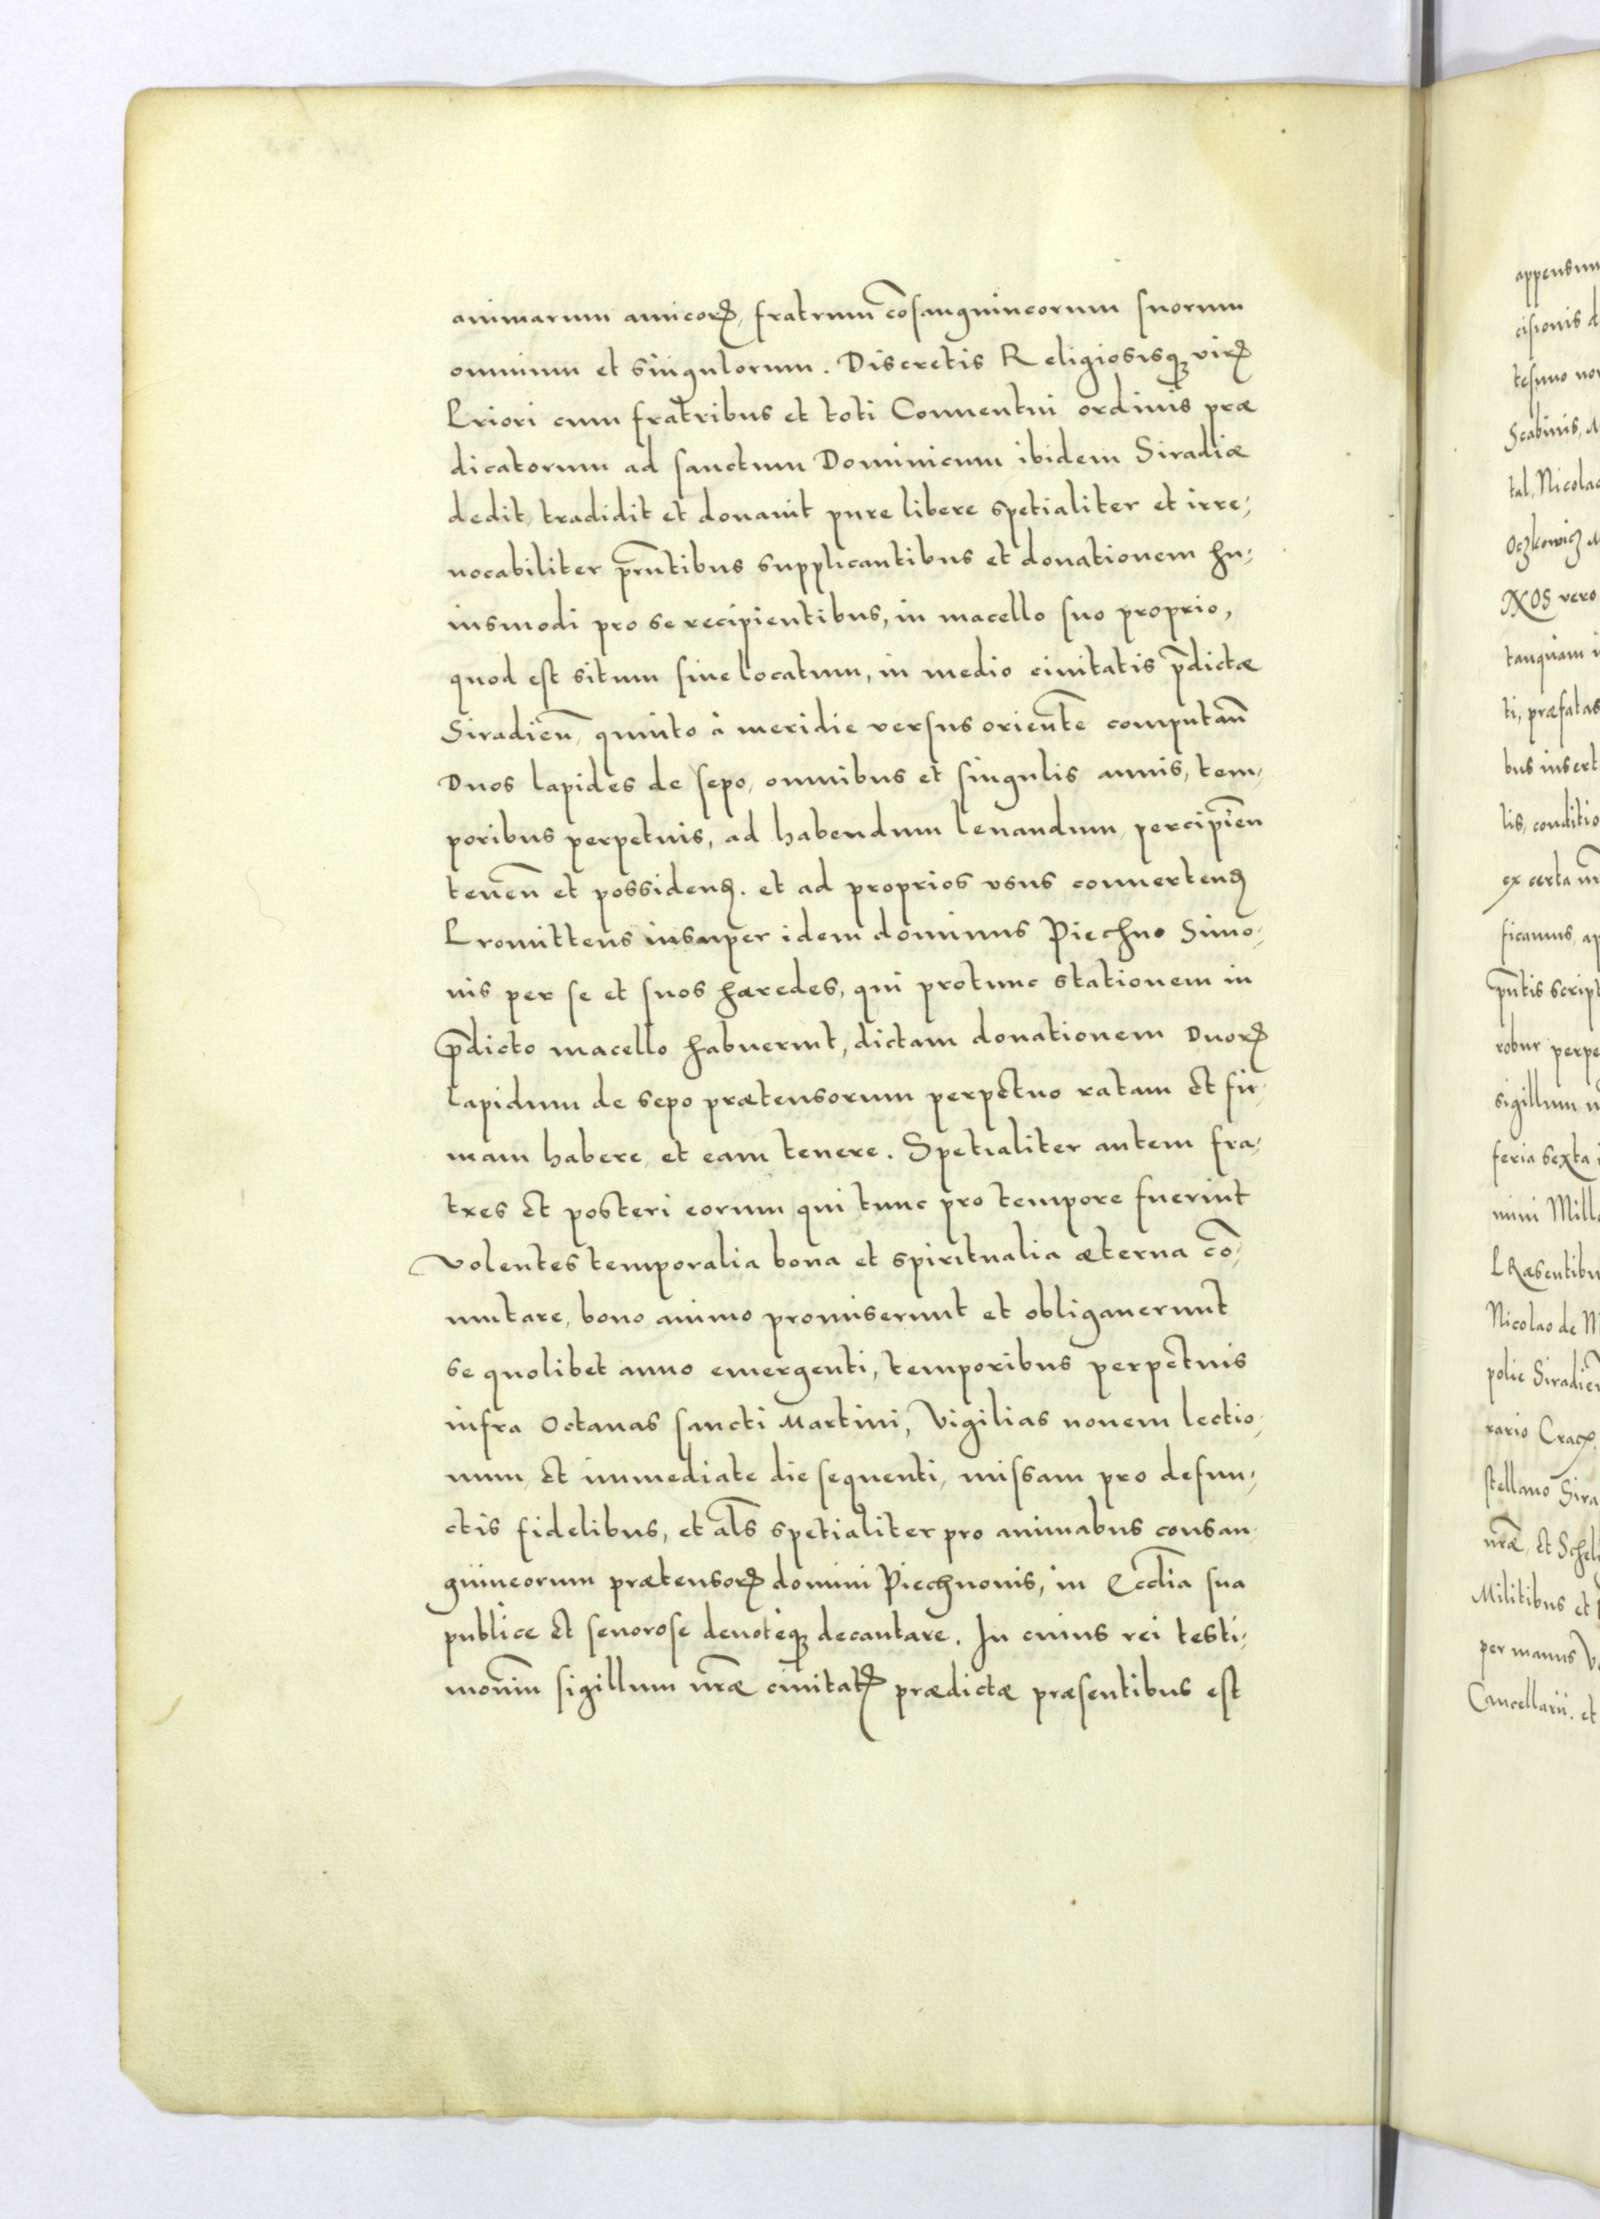 animarum amicorꝝ, fratrum cōsanguineorum suorum
omnium et singulorum. Discretis Religiosisqꝫ virꝭ
Priori cum fratribus et toti Conuentui ordinis præ
dicatorum ad sanctum Dominicum ibidem Siradiæ
dedit, tradidit et donauit pure libere spetialiter et irre,
uocabiliter prñtibus supplicantibus et donationem hu,
iusmodi pro se recipientibus, in macello suo proprio,
quod est situm siue locatum, in medio ciuitatis p̄dictæ
Siradieñ, quinto à meridie versus orientē computañ
Duos lapides de sepo, omnibus et singulis annis, tem,
poribus perpetuis, ad habendum leuandum, percipieñ
teneñ et possidenꝭ. et ad proprios vsus conuertenꝭ
Promittens insuper idem dominus Piechno Simo,
nis per se et suos hæredes, qui protunc stationem in
p̄dicto macello habuerint, dictam donationem Duorꝝ
lapidum de sepo prætensorum perpetuo ratam et fir,
mam habere, et eam tenere. Spetialiter autem fra,
tres et posteri eorum qui tunc pro tempore fuerint
volentes temporalia bona et spiritualia æterna cō,
mutare, bono animo promiserunt et obligauerunt
se quolibet anno emergenti, temporibus perpetuis
infra Octauas sancti Martini, Vigilias nouem lectio,
num, et immediate die sequenti, missam pro defun,
ctis fidelibus, et al̄s spetialiter pro animabus consan,
guineorum prætensorꝝ domini Piechnonis, in Eccl̄ia sua
publice et senorose deuoteqꝫ decantare. In cuius rei testi,
moniū sigillum nr̄æ ciuitatꝭ prædictæ præsentibus est
appensum
cisionis
Scabinis,
tal, Nicolao
Oczkowicz
NOS vero
tanquam
ti, præfatas
bus insert
lis, conditio
ex certa
ficamus, ap
pn̄tis script
robur perpe
sigillum
feria sexta
mini Mill
PRæsentibu
Nicolao de
polie Siradieñ
rario Crac
stellano Sira
nr̄æ, et Schel
Militibus et
per manus
Cancellarii. et